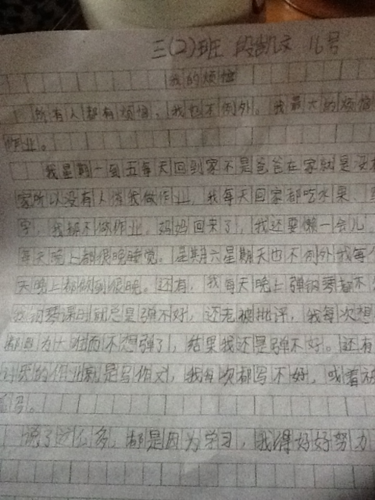 三(2)班 段凯文 16号
我的烦恼
所有人都有烦恼,我也不例外。我最大的烦恼
作业。
我星期一到五每天回到家不是爸爸在家就是没
家所以没有人催我做作业,我每天回家都吃水果、
字,我都不做作业,妈妈回来了,我还要懒一会儿
每天晚上都很晚睡觉。星期六星期天也不例外我每个
天晚上都做到很晚。还有,我每天晚上弹钢琴都不
钢琴课时就总是弹不好,还老被批评,我每次想
都因为太难而不想弹了,结果我还是弹不好。还有
的作业就是写作文,我每次都写不好,
的多。
说了这么多,都是因为学习,我得好好努力